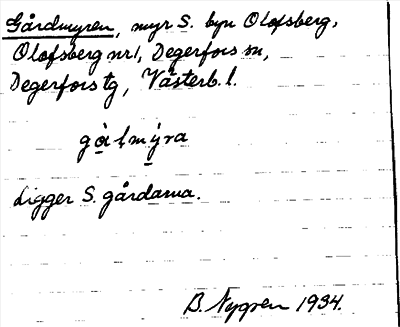 Gårdmyren, myr S. byn Olofsberg,
Olofsberg nr 1, Degerfors sn,
Degerfors tg, Västerb. l.
Ligger S. gårdarna.
B. Nygren 1934.